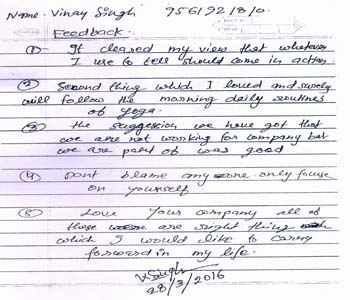 Name. Vinay Singh 95619218/0.
Feedback.
① It cleared my view that whatever
I use to tell should come in action
② Second thing which I loved and surely
will follow the morning daily routines
of yoga.
③ the suggession we have got that
we are not working for company but
we are part of was good
④ Dont blame any one only focuse
on yourself.
⑤ Love your company all of
these are right thing
which I would like to carry
forward in my life.
VSingh
28/3/2016